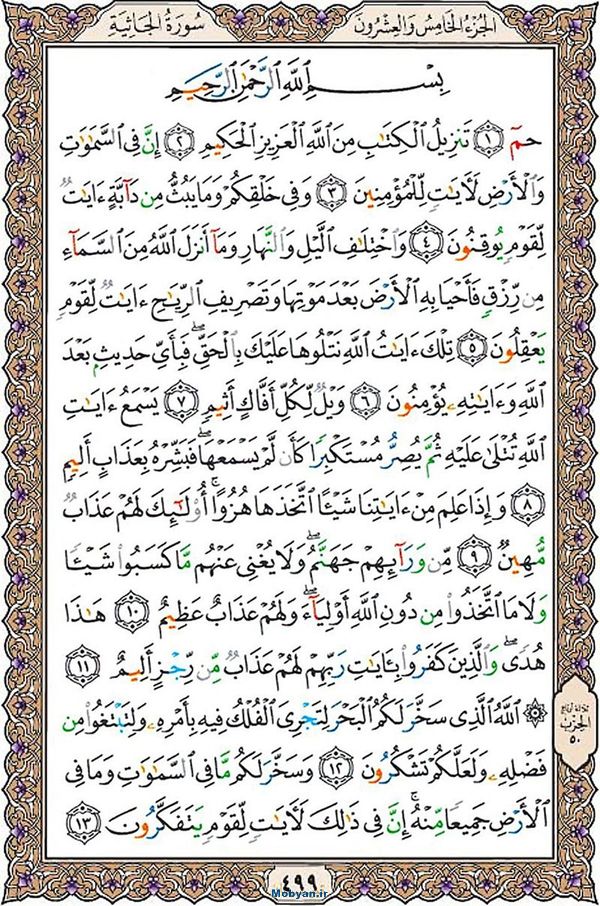 الجزء الخامس والعشرون
سورة الجاثية
بِسْمِ ٱللَّهِ ٱلرَّحْمَٰنِ ٱلرَّحِيمِ
حمٓ ١ تَنزِيلُ ٱلْكِتَٰبِ مِنَ ٱللَّهِ ٱلْعَزِيزِ ٱلْحَكِيمِ ٢ إِنَّ فِى ٱلسَّمَٰوَٰتِ
وَٱلْأَرْضِ لَءَايَٰتٍ لِّلْمُؤْمِنِينَ ٣ وَفِى خَلْقِكُمْ وَمَا يَبُثُّ مِن دَآبَّةٍ ءَايَٰتٌ
لِّقَوْمٍ يُوقِنُونَ ٤ وَٱخْتِلَٰفِ ٱلَّيْلِ وَٱلنَّهَارِ وَمَآ أَنزَلَ ٱللَّهُ مِنَ ٱلسَّمَآءِ
مِن رِّزْقٍ فَأَحْيَا بِهِ ٱلْأَرْضَ بَعْدَ مَوْتِهَا وَتَصْرِيفِ ٱلرِّيَٰحِ ءَايَٰتٌ لِّقَوْمٍ
يَعْقِلُونَ ٥ تِلْكَ ءَايَٰتُ ٱللَّهِ نَتْلُوهَا عَلَيْكَ بِٱلْحَقِّ ۖ فَبِأَىِّ حَدِيثٍۭ بَعْدَ
ٱللَّهِ وَءَايَٰتِهِۦ يُؤْمِنُونَ ٦ وَيْلٌ لِّكُلِّ أَفَّاكٍ أَثِيمٍ ٧ يَسْمَعُ ءَايَٰتِ
ٱللَّهِ تُتْلَىٰ عَلَيْهِ ثُمَّ يُصِرُّ مُسْتَكْبِرًا كَأَن لَّمْ يَسْمَعْهَا ۖ فَبَشِّرْهُ بِعَذَابٍ أَلِيمٍ
٨ وَإِذَا عَلِمَ مِنْ ءَايَٰتِنَا شَيْـًٔا ٱتَّخَذَهَا هُزُوًا ۚ أُو۟لَٰٓئِكَ لَهُمْ عَذَابٌ
مُّهِينٌ ٩ مِّن وَرَآئِهِمْ جَهَنَّمُ ۖ وَلَا يُغْنِى عَنْهُم مَّا كَسَبُوا۟ شَيْـًٔا
وَلَا مَا ٱتَّخَذُوا۟ مِن دُونِ ٱللَّهِ أَوْلِيَآءَ ۖ وَلَهُمْ عَذَابٌ عَظِيمٌ ١٠ هَٰذَا
هُدًى ۖ وَٱلَّذِينَ كَفَرُوا۟ بِـَٔايَٰتِ رَبِّهِمْ لَهُمْ عَذَابٌ مِّن رِّجْزٍ أَلِيمٌ ١١
۞ ٱللَّهُ ٱلَّذِى سَخَّرَ لَكُمُ ٱلْبَحْرَ لِتَجْرِىَ ٱلْفُلْكُ فِيهِ بِأَمْرِهِۦ وَلِتَبْتَغُوا۟ مِن
فَضْلِهِۦ وَلَعَلَّكُمْ تَشْكُرُونَ ١٢ وَسَخَّرَ لَكُم مَّا فِى ٱلسَّمَٰوَٰتِ وَمَا فِى
ٱلْأَرْضِ جَمِيعًا مِّنْهُ ۚ إِنَّ فِى ذَٰلِكَ لَءَايَٰتٍ لِّقَوْمٍ يَتَفَكَّرُونَ ١٣
ثلاثة أرباع
الحزب
٥٠
٤٩٩
Mobyan.ir